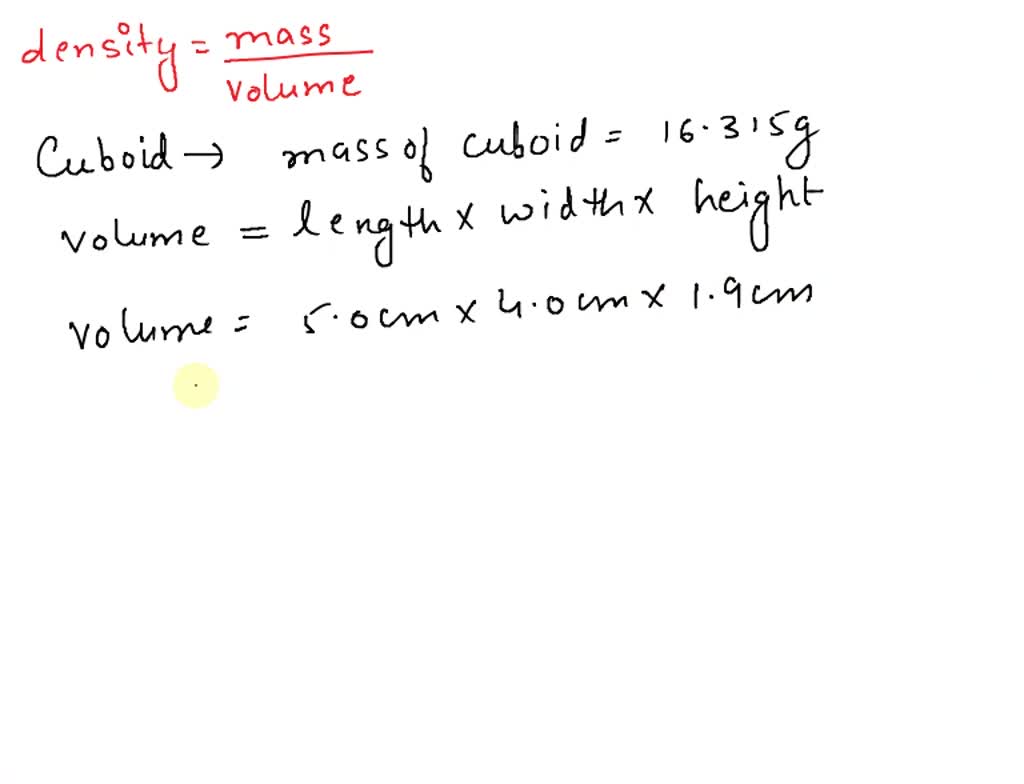 density = mass / volume
Cuboid → mass of cuboid = 16.315g
volume = length x width x height
volume = 5.0cm x 4.0cm x 1.9cm